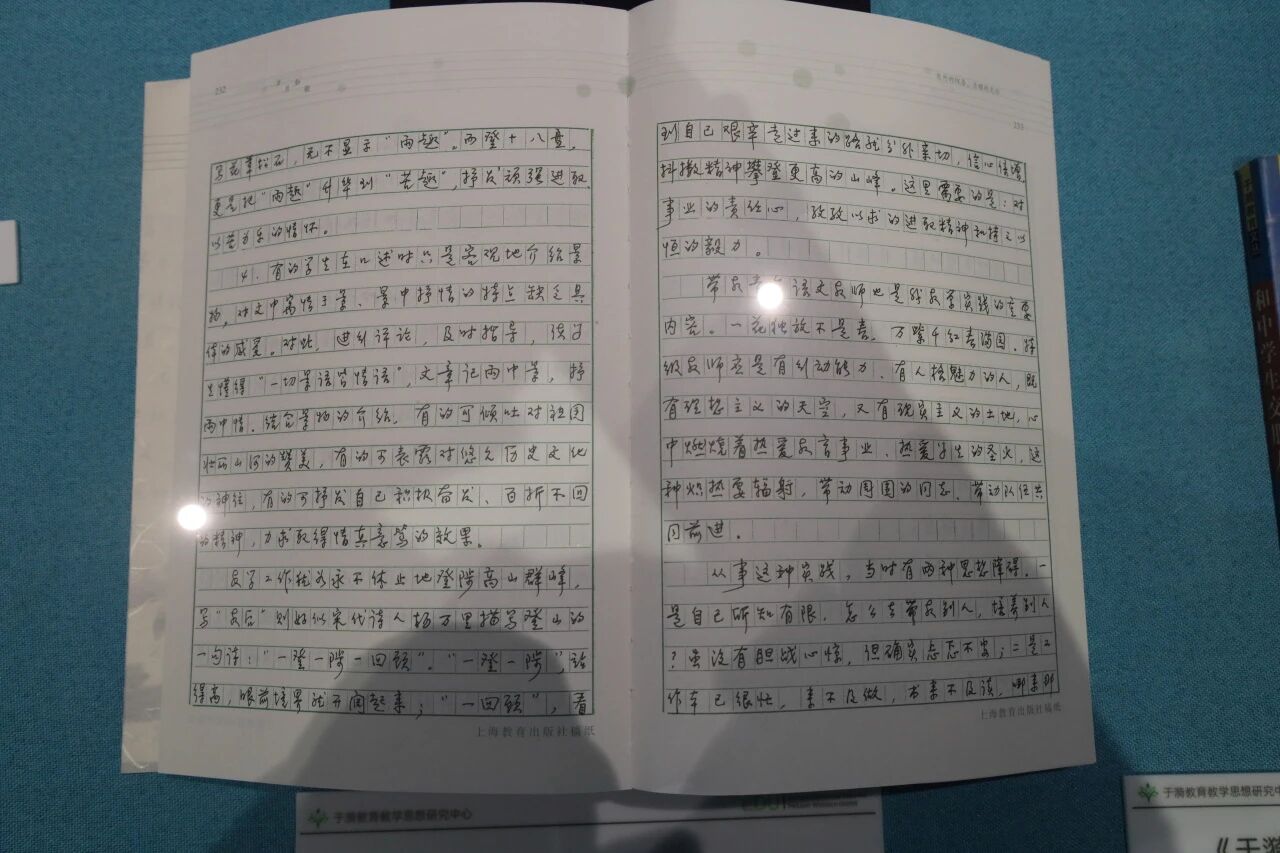 232
写花草松石，无不显示“雨趣”。而登十八盘，
更是把“雨趣”升华到“苦趣”，抒发顽强进取、
以苦为乐的情怀。
4．有的学生在口述时只是客观地介绍景
物，对文中寓情于景、景中抒情的特点缺乏具
体的感受。对此，进行评论，及时指导，
懂得“一切景语皆情语”，文章记雨中景，抒
雨中情。结合景物的介绍，有的可倾吐对祖国
壮丽山河的赞美，有的可表露对悠久历史文化
的神往，有的可抒发自己积极奋发、百折不回
的精神，力求取得情真意笃的效果。
教学工作就为永不休止地登陟高山群峰，
写“教后”则好似宋代诗人杨万里描写登山的
一句诗：“一登一陟一回顾”。“一登一陟”，站
得高，眼前境界就开阔起来；“一回顾”，看
上海教育出版社稿纸
233
到自己艰辛走过来的路就分外亲切，信心倍增，
抖擞精神攀登更高的山峰。这里需要的是：对
事业的责任心，孜孜以求的进取精神和持之以
恒的毅力。
带教青年语文教师也是我教学实践的重要
内容。一花独放不是春，万紫千红春满园。特
级教师应是有行动能力、有人格魅力的人，既
有理想主义的天空，又有现实主义的土地，心
中燃烧着热爱教育事业、热爱学生的圣火，这
种炽热要辐射，带动周围的同志、带动队伍共
同前进。
从事这种实践，当时有两种思想障碍。一
是自己所知有限，怎么去带教别人，培养别人
？虽没有胆战心惊，但确实忐忑不安；二是工
作本已很忙，来不及做，书来不及读，哪来那
上海教育出版社稿纸
于漪教育教学思想研究中心
于漪教育教学思想研究中心
《于漪
和中学生